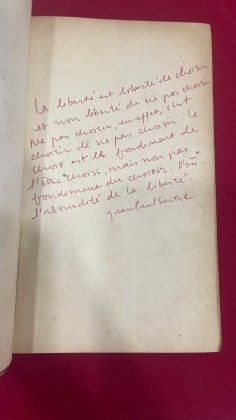 La liberté est liberté de choisir
et non liberté de ne pas choisir
Ne pas choisir, en effet, c'est
choisir de ne pas choisir. Le
choix est le fondement de
l'être choisi, mais non pas
fondement du choisir. D'où
l'absurdité de la liberté.
Jean Paul Sartre